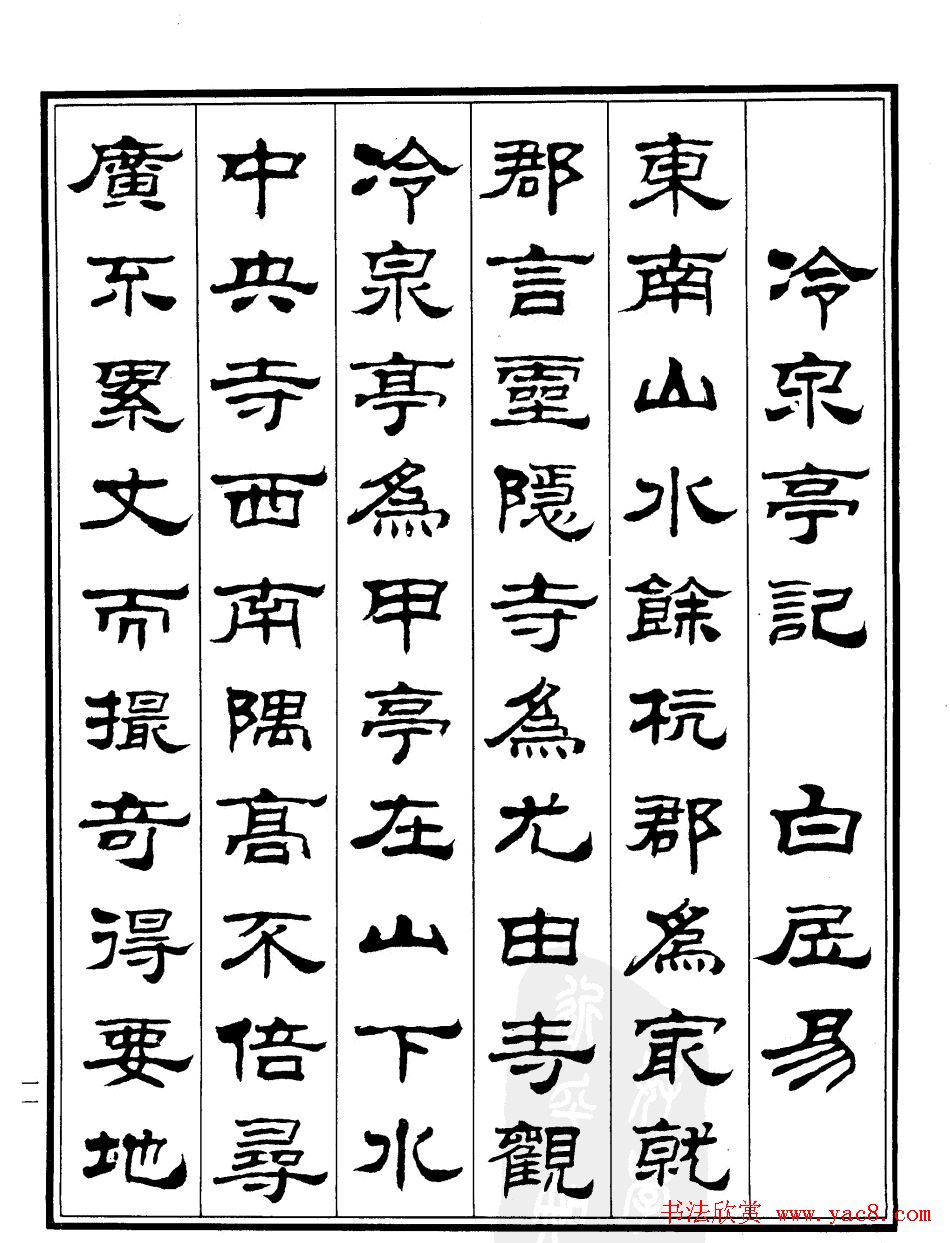 冷泉亭記 白居易
東南山水餘杭郡爲最就
郡言靈隱寺爲尤由寺觀
冷泉亭爲甲亭在山下水
中央寺西南隅高不倍尋
廣不累丈而撮奇得要地
一一
书法欣赏 www.yac8.com